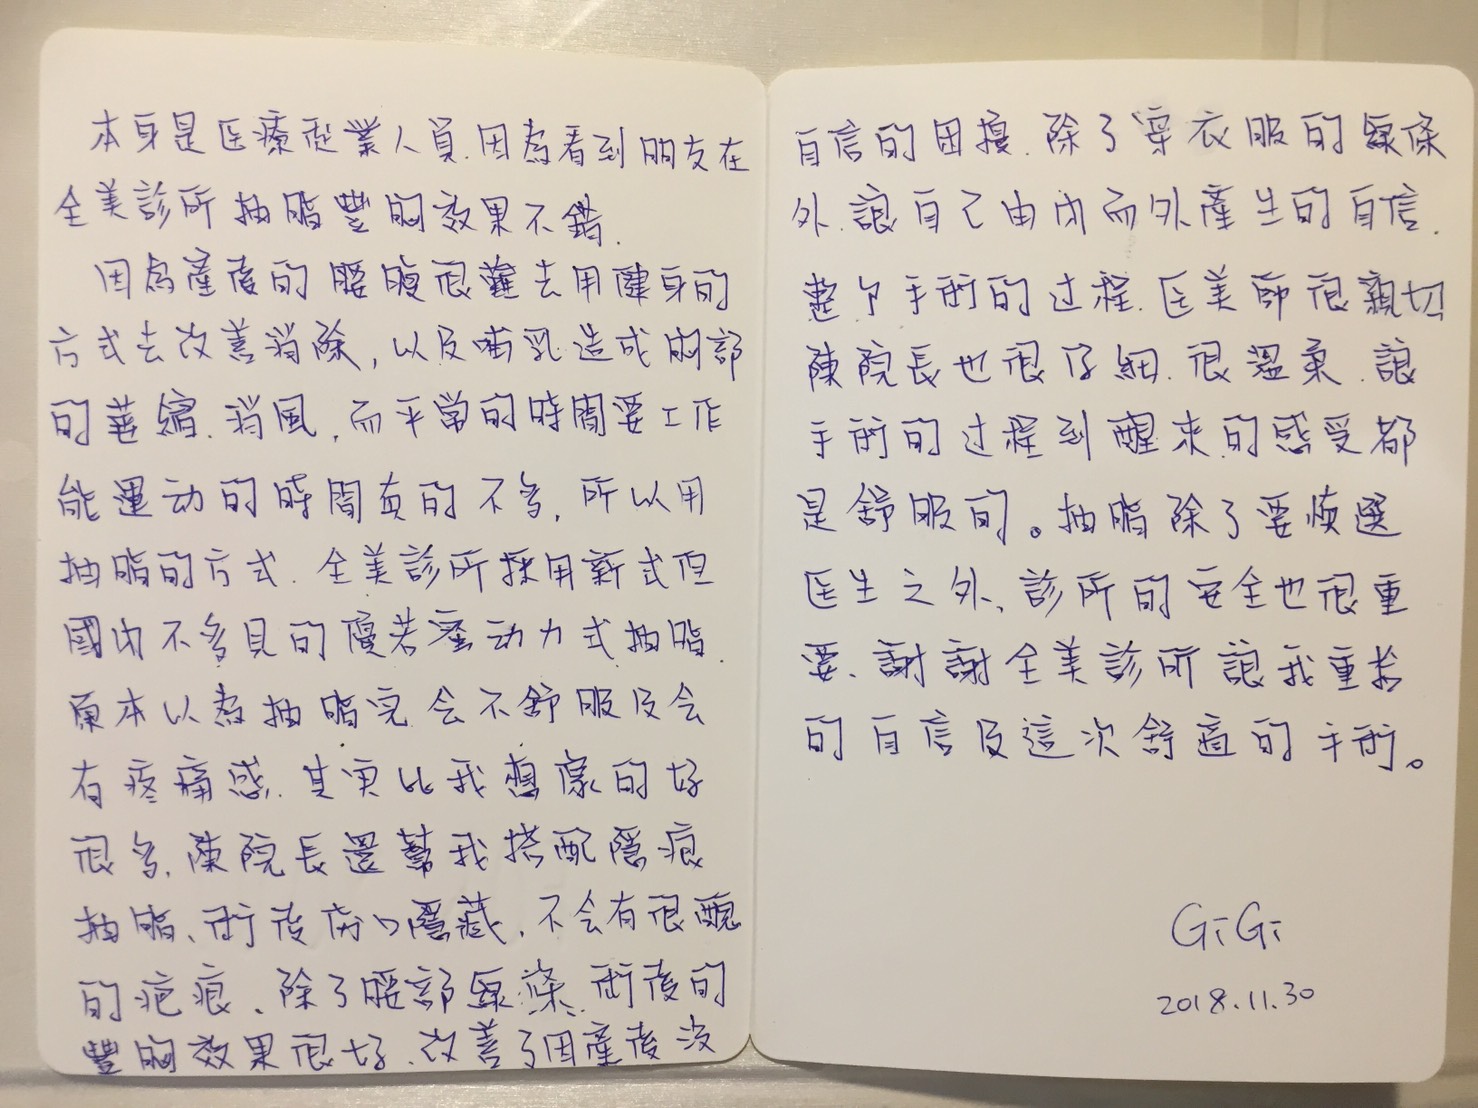 本身是医療從業人員.因為看到朋友在
全美診所抽脂豐胸效果不錯.
因為產後的腰腹很難去用健身的
方式去改善消除,以及哺乳造成胸部
的萎縮.消風,而平常的時間要工作
能運动的時間真的不多,所以用
抽脂的方式.全美診所採用新式但
國內不多見的優若塑动力式抽脂.
原本以為抽脂完会不舒服及会
有疼痛感.其实比我想像的好
很多,陳院長還幫我搭配隱痕
抽脂、術後傷口隱藏,不会有很醜
的疤痕、除了腰部線條.術後的
豐胸效果很好.改善了因產後沒
自信的困擾.除了穿衣服的線條
外.讓自己由內而外產生的自信.
整个手術的过程.医美師很親切
陳院長也很仔細.很溫柔.讓
手術的过程到醒來的感受都
是舒服的。抽脂除了要慎選
医生之外、診所的安全也很重
要.謝謝全美診所讓我重拾
的自信及這次舒適的手術。
GiGi
2018.11.30